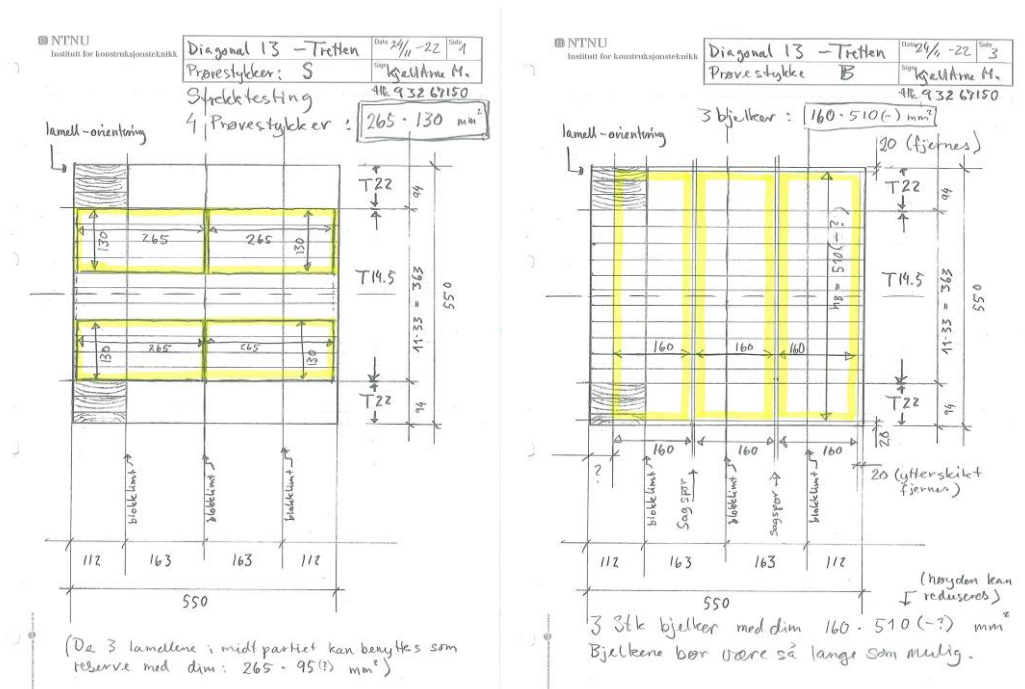 NTNU
Institutt for konstruksjonsteknikk
Diagonal 13 – Tretten
Date 24/11 -22
Side 1
Prøvestykker: S
Sign KjellArne M.
Tlf. 932 67150
Strekktesting
4 Prøvestykker : 265 · 130 mm²
lamell-orientering
T22
94
130
265
265
130
T14.5
11·33 = 363
550
130
265
265
130
T22
94
blokklimt
blokklimt
blokklimt
112
163
163
112
550
(De 3 lamellene i midtpartiet kan benyttes som
reserve med dim: 265 · 95(?) mm²)
NTNU
Institutt for konstruksjonsteknikk
Diagonal 13 – Tretten
Date 24/11 -22
Side 3
Prøvestykke B
Sign KjellArne M.
Tlf. 932 67150
3 bjelker : 160 · 510(-) mm²
lamell-orientering
20 (fjernes)
T22
94
hB = 510(-?)
T14.5
11·33 = 363
550
160
160
160
T22
94
20
160
160
160
?
20 (ytterskikt
fjernes)
blokklimt
Sagspor
blokklimt
Sagspor
blokklimt
112
163
163
112
550
(høyden kan
reduseres)
3 Stk bjelker med dim 160 · 510(-?) mm²
Bjelkene bør være så lange som mulig.